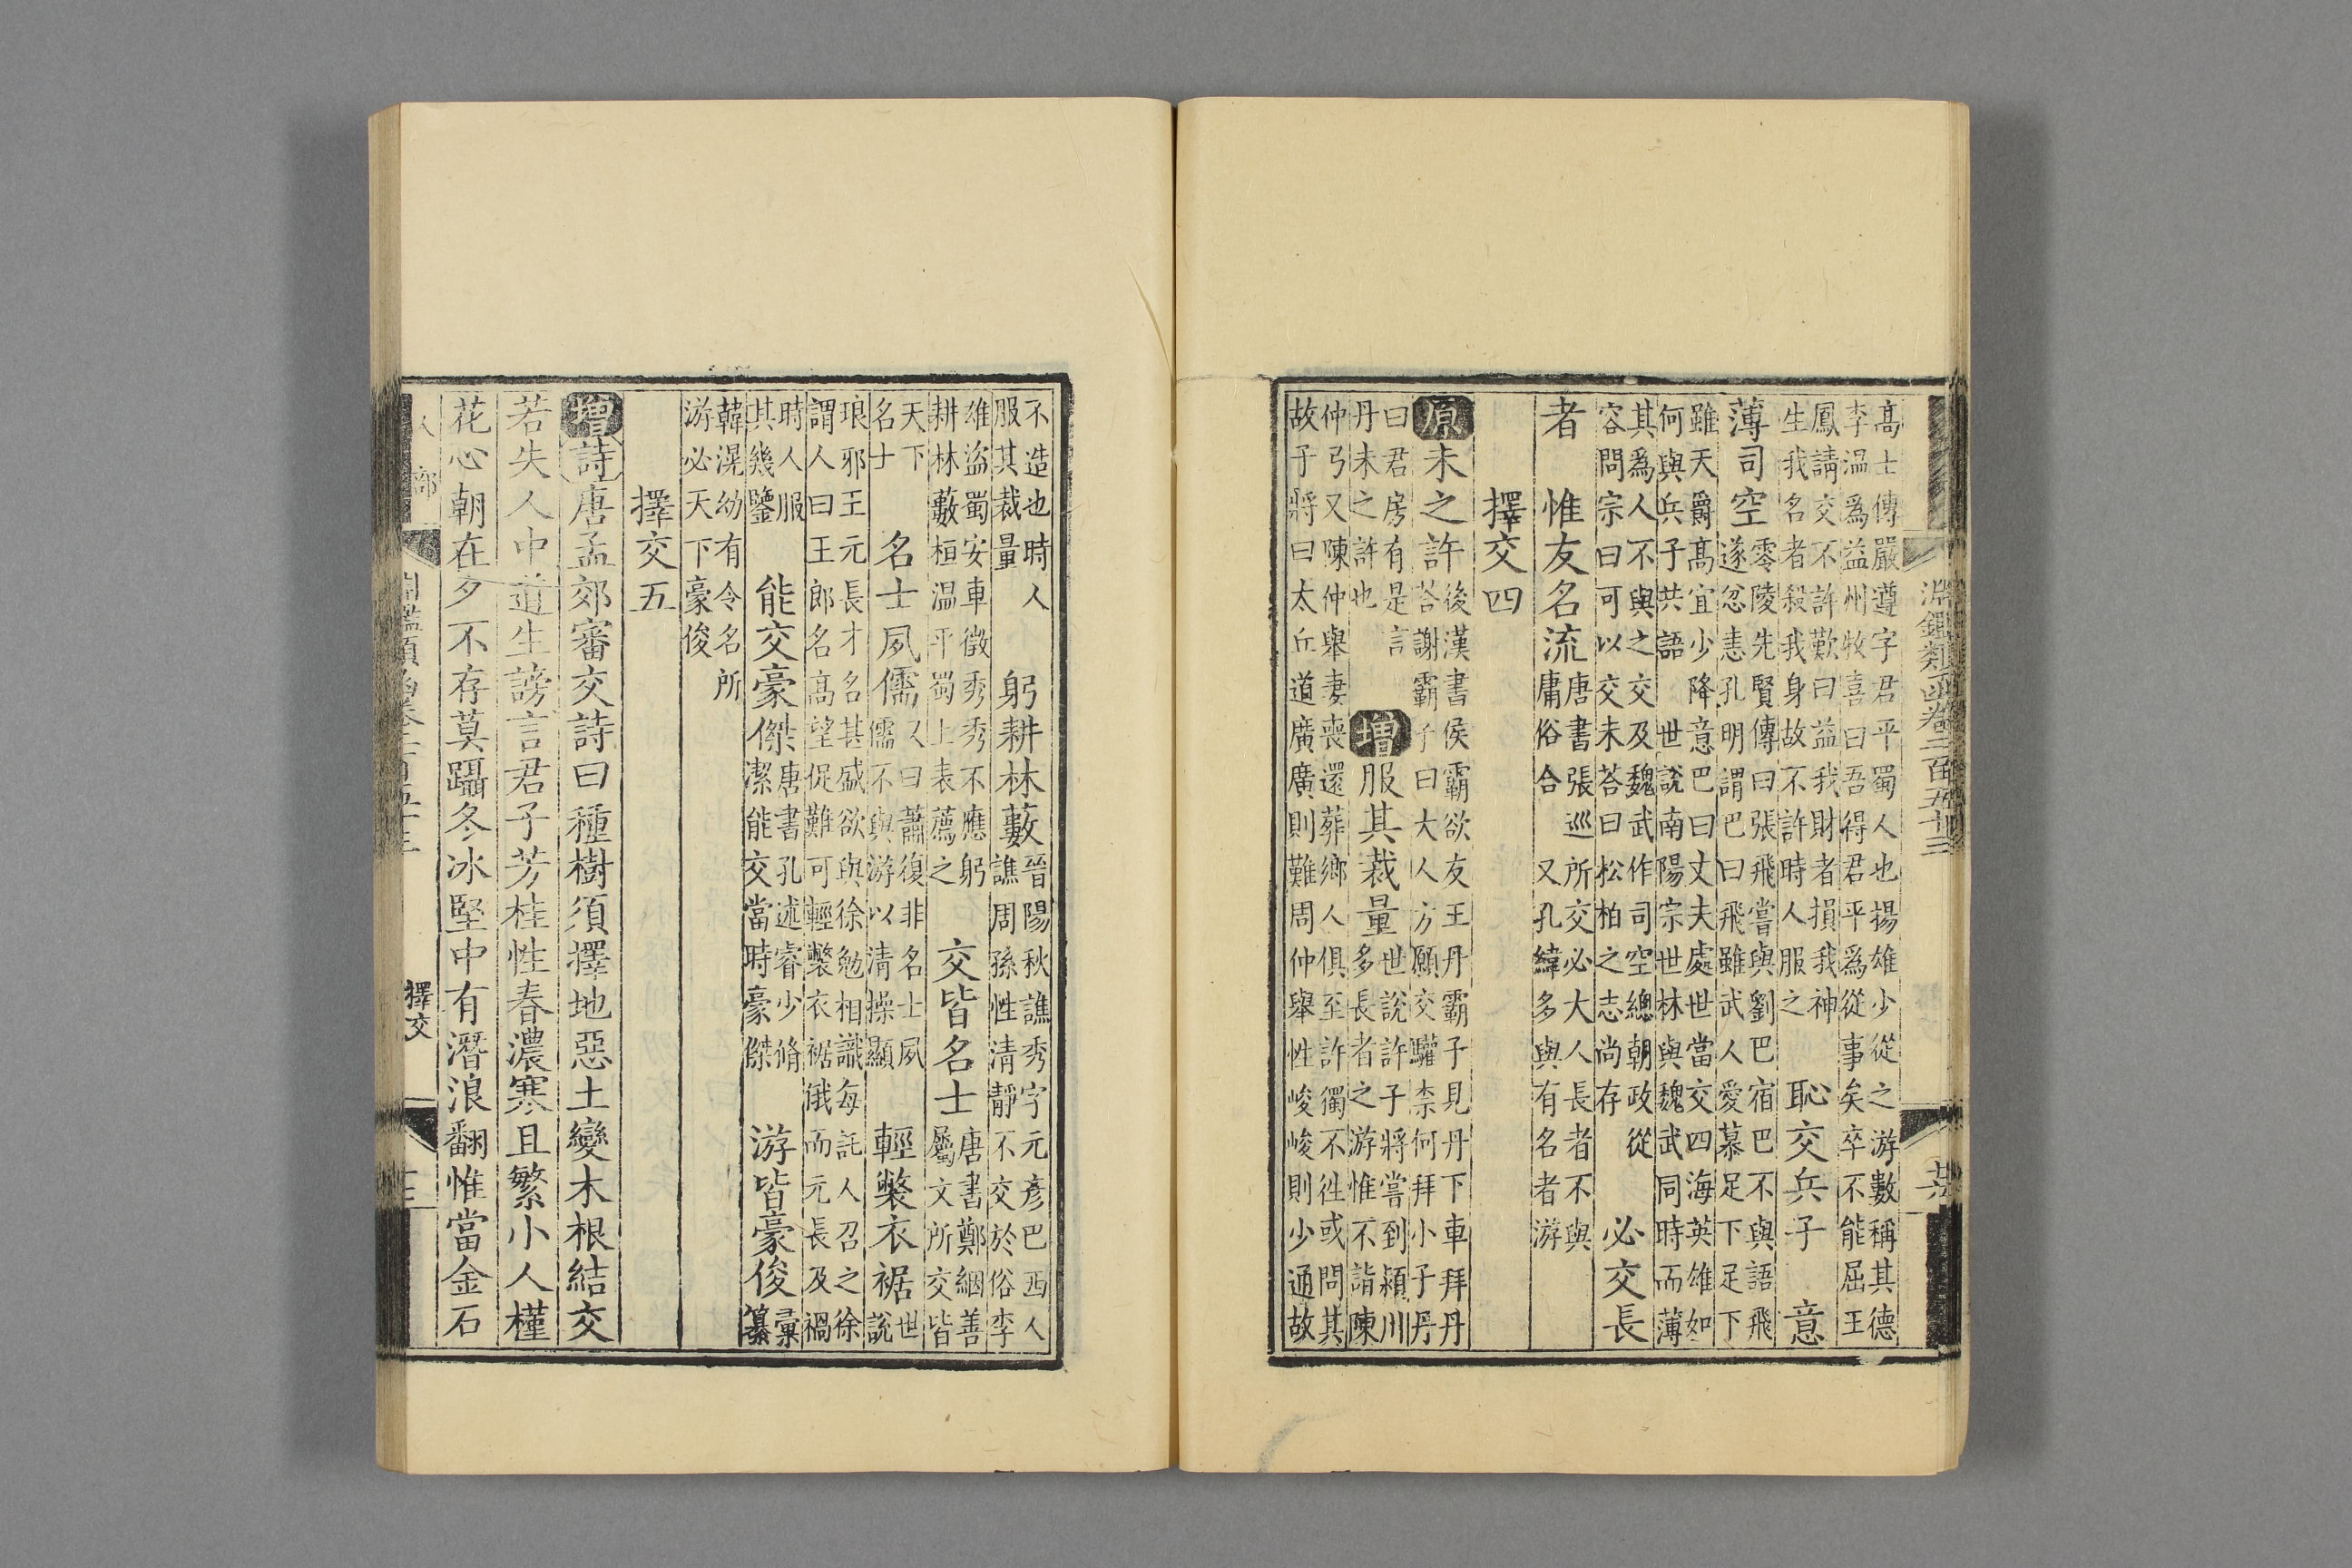 淵鑑類函卷二百五十三
高士傳嚴遵字君平蜀人也揚雄少從之游數稱其德
李温爲益州牧喜曰吾得君平爲從事矣卒不能屈王
鳳請交不許歎曰益我財者損我神
生我名者殺我身故不許時人服之
恥交兵子 意
薄司空
零陵先賢傳曰張飛嘗與劉巴宿巴不與語飛
遂忿恚孔明謂巴曰飛雖武人愛慕足下足下
雖天爵高宜少降意巴曰丈夫處世當交四海英雄如
何與兵子共語 世說南陽宗世林與魏武同時而薄
其爲人不與之交及魏武作司空總朝政從
容問宗曰可以交未荅曰松柏之志尚存
必交長
者 惟友名流
唐書張巡所交必大人長者不與
庸俗合 又孔緯多與有名者游
擇交四
原未之許
後漢書侯霸欲友王丹霸子見丹下車拜丹
荅謝霸子曰大人方願交驩柰何拜小子丹
曰君房有是言
丹未之許也
增服其裁量
世說許子將嘗到潁川
多長者之游惟不詣陳
仲弓又陳仲舉妻喪還葬鄉人俱至許獨不徃或問其
故子將曰太丘道廣廣則難周仲舉性峻峻則少通故
不造也時人
服其裁量
躬耕林藪
晉陽秋譙秀字元彥巴西人
譙周孫性清靜不交於俗李
雄盜蜀安車徵秀秀不應躬
耕林藪桓温平蜀上表薦之
交皆名士
唐書鄭絪善
屬文所交皆
天下
名士
名士夙儒
又曰蕭復非名士夙
儒不與游以清操顯
輕檠衣裾
世
說
琅邪王元長才名甚盛欲與徐勉相識每託人召之徐
謂人曰王郎名高望促難可輕檠衣裾俄而元長及禍
時人服
其幾鑒
能交豪傑
唐書孔述睿少脩
潔能交當時豪傑
游皆豪俊
彙
纂
韓滉幼有令名所
游必天下豪俊
擇交五
增詩唐孟郊審交詩曰種樹須擇地惡土變木根結交
若失人中道生謗言君子芳桂性春濃寒且繁小人槿
花心朝在夕不存莫躡冬冰堅中有潛浪翻惟當金石
人部
淵鑑類函卷二百五十三
擇交